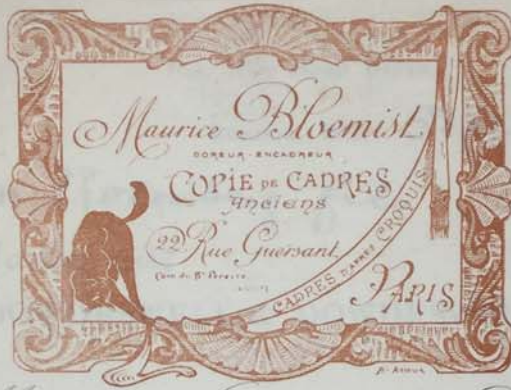 Maurice Bloemist
DOREUR-ENCADREUR
COPIE DE CADRES
Anciens
22 Rue Guersant
Coin du Bd Pereire
CADRES D'APRÈS CROQUIS
PARIS